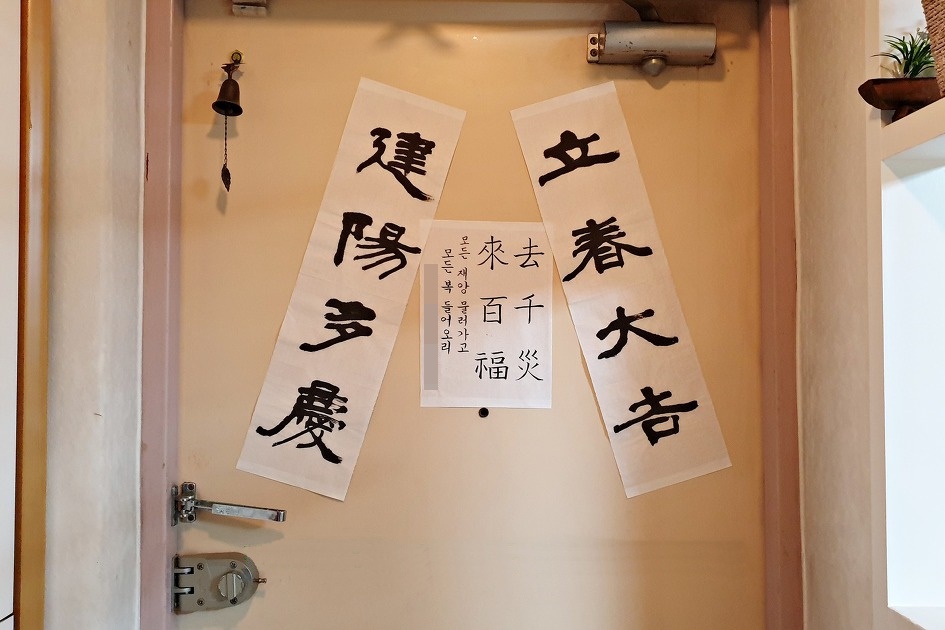 立春大吉
建陽多慶
去千災
來百福
모든 재앙 물러가고
모든 복 들어오리